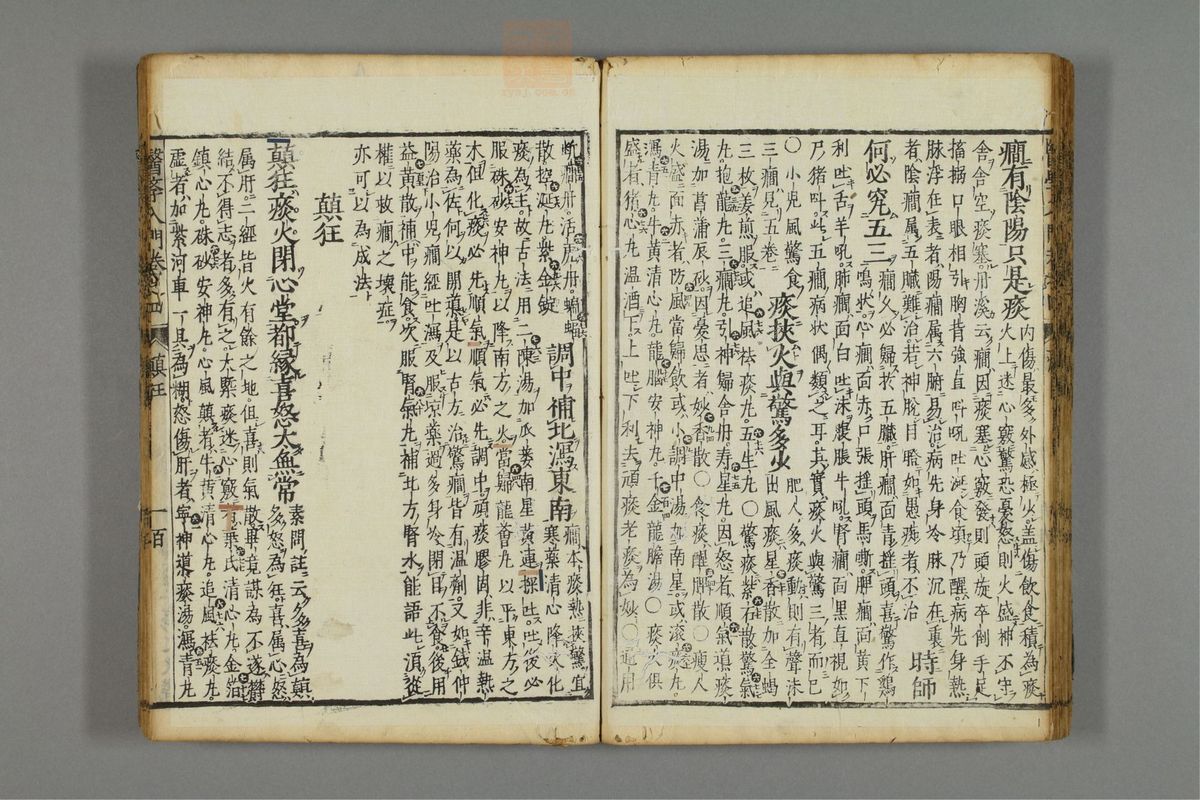 癇有陰陽只是痰內傷最多外感極少蓋傷飲食積為痰
火上迷心竅驚恐憂怒則火盛神不守
舍舍空痰塞丹溪云癇因痰塞心竅發則頭旋卒倒手足
搐搦口眼相引胸背強直叫吼吐涎食頃乃醒病先身熱
脉浮在表者陽癇属六腑易治病先身冷脉沉在裏
者陰癇属五臟難治若神脫目瞪如愚痴者不治
時師
何必究五三癇久必歸於五臟肝癇面青揺頭喜驚作雞
鳴狀心癇面赤口張揺頭馬嘶脾癇面黃下
利吐舌羊吼肺癇面白吐沫腹脹牛吼腎癇面黑直視如
尸猪叫此五癇病状偶類之耳其實痰火與驚三者而已
〇小児風驚食
三癇見五卷
痰挾火與驚多少肥人多痰動則有聲沫
出風痰星香散加全蝎
三枚姜煎服或追風祛痰丸五生丸〇驚痰紫石散驚氣
丸抱龍丸三癇丹引神歸舍丹寿星丸因怒者順氣導痰
湯加菖蒲辰砂因憂思者妙香散〇食痰醒脾散〇瘦人
火盛面赤者防風當歸飲或小調中湯加南星或滾痰丸
瀉青丸牛黃清心丸龍腦安神丸千金龍膽湯〇痰火俱
盛者猪心丸温酒下上吐下利去頑痰老痰為妙〇通用
斷癇丹活虎丹蝙蝠
散控涎丸紫金錠
調中補北瀉東南癇本痰熱挾驚宜
寒藥清心降火化
痰為主故古法用二陳湯加瓜蔞南星黃連探吐吐後必
服硃砂安神丸以降南方之火當歸龍薈丸以平東方之
木但化痰必先順氣順氣必先調中頑痰膠固非辛温熱
藥為佐何以開導是以古方治驚癇皆有温劑又如錢仲
陽治小児癇經吐瀉及服凉藥過多身冷閉目不食後用
益黃散補中能食次服腎氣丸補北方腎水能語此須從
權以救癇之壊症
亦可以為成法
顛狂
顛狂痰火閉心堂都縁喜怒太無常素問註云多喜為顛
多怒為狂喜属心怒
属肝二經皆火有餘之地但喜則氣散畢竟謀為不遂鬱
結不得志者多有之大槩痰迷心竅葉氏清心丸金箔
鎮心丸硃砂安神丸心風顛者牛黃清心丸追風祛痰丸
虛者加紫河車一具為糊怒傷肝者寧神導痰湯瀉青丸
醫學入門卷四 顛狂 一百